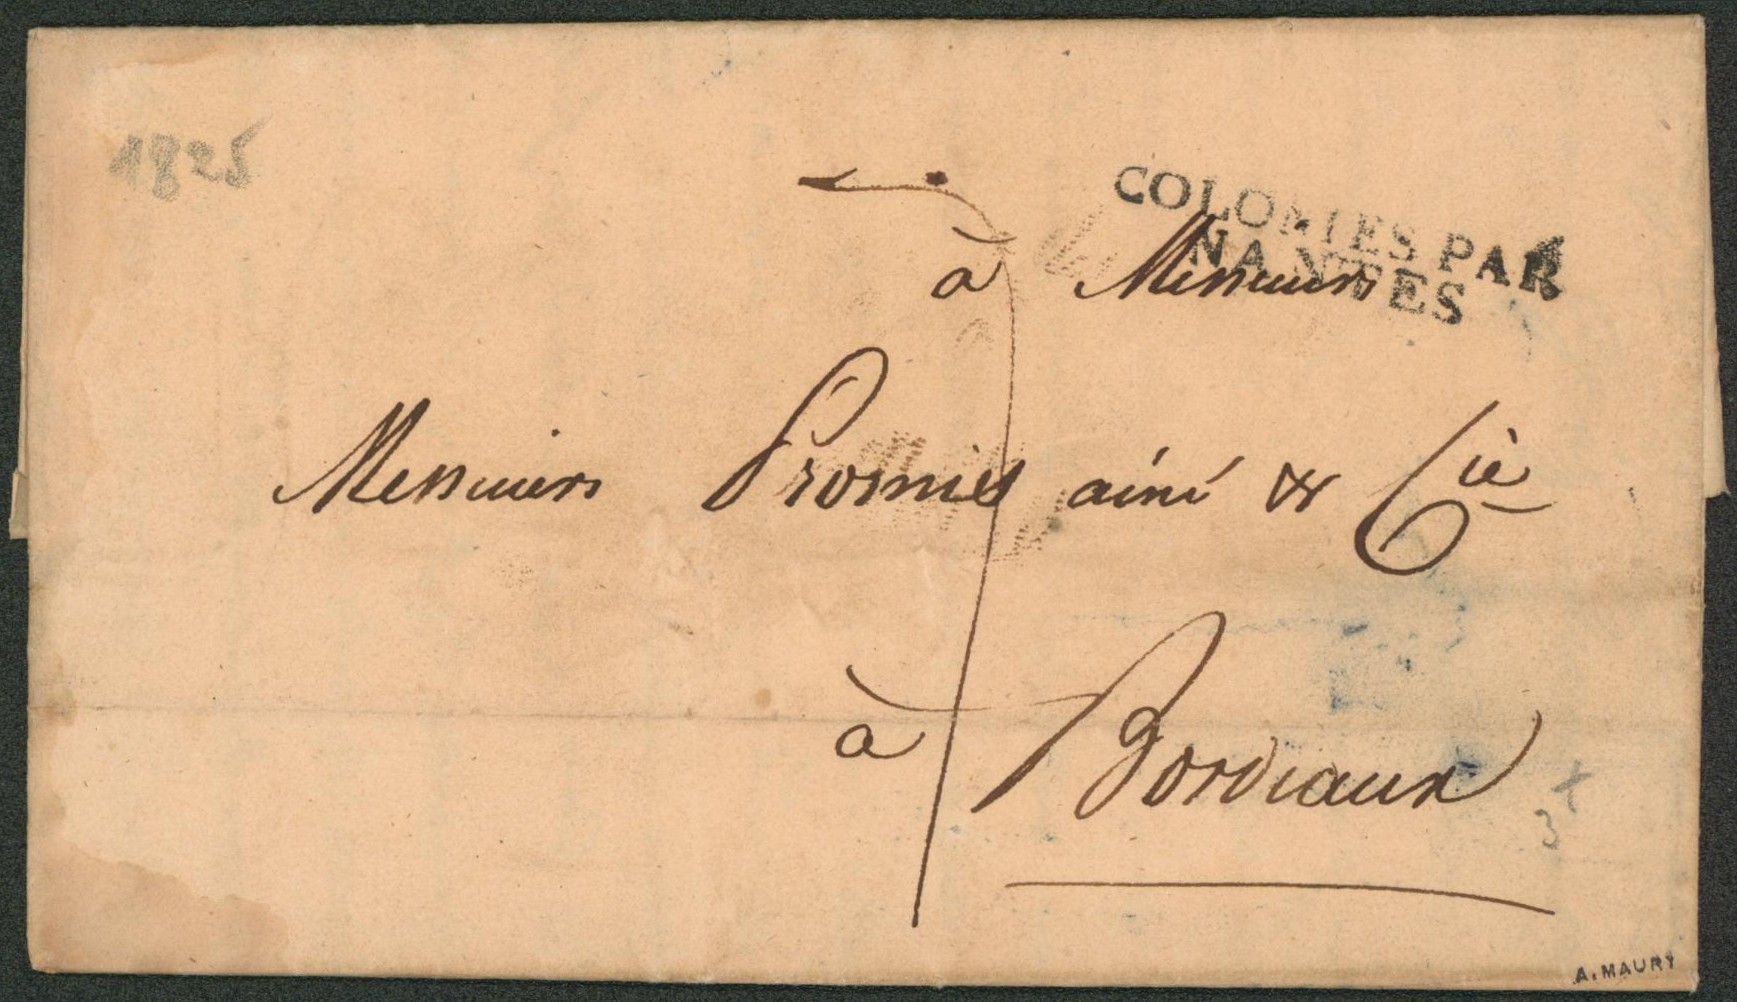 1825
COLONIES PAR
NANTES
à Messieurs
Messieurs Promis ainé & Cie
à Bordeaux
3
A. MAURY